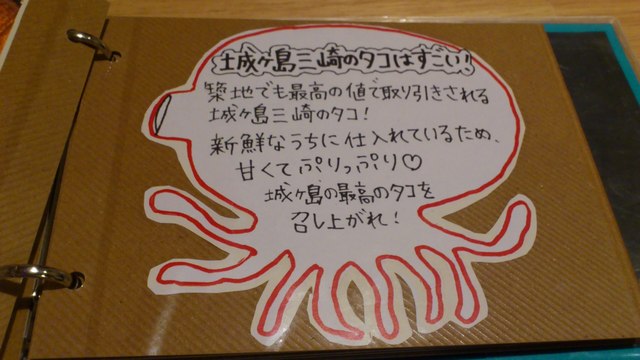 城ヶ島三崎のタコはすごい!
築地でも最高の値で取り引きされる
城ヶ島三崎のタコ!
新鮮なうちに仕入れているため、
甘くてぷりっぷり♡
城ヶ島の最高のタコを
召し上がれ!